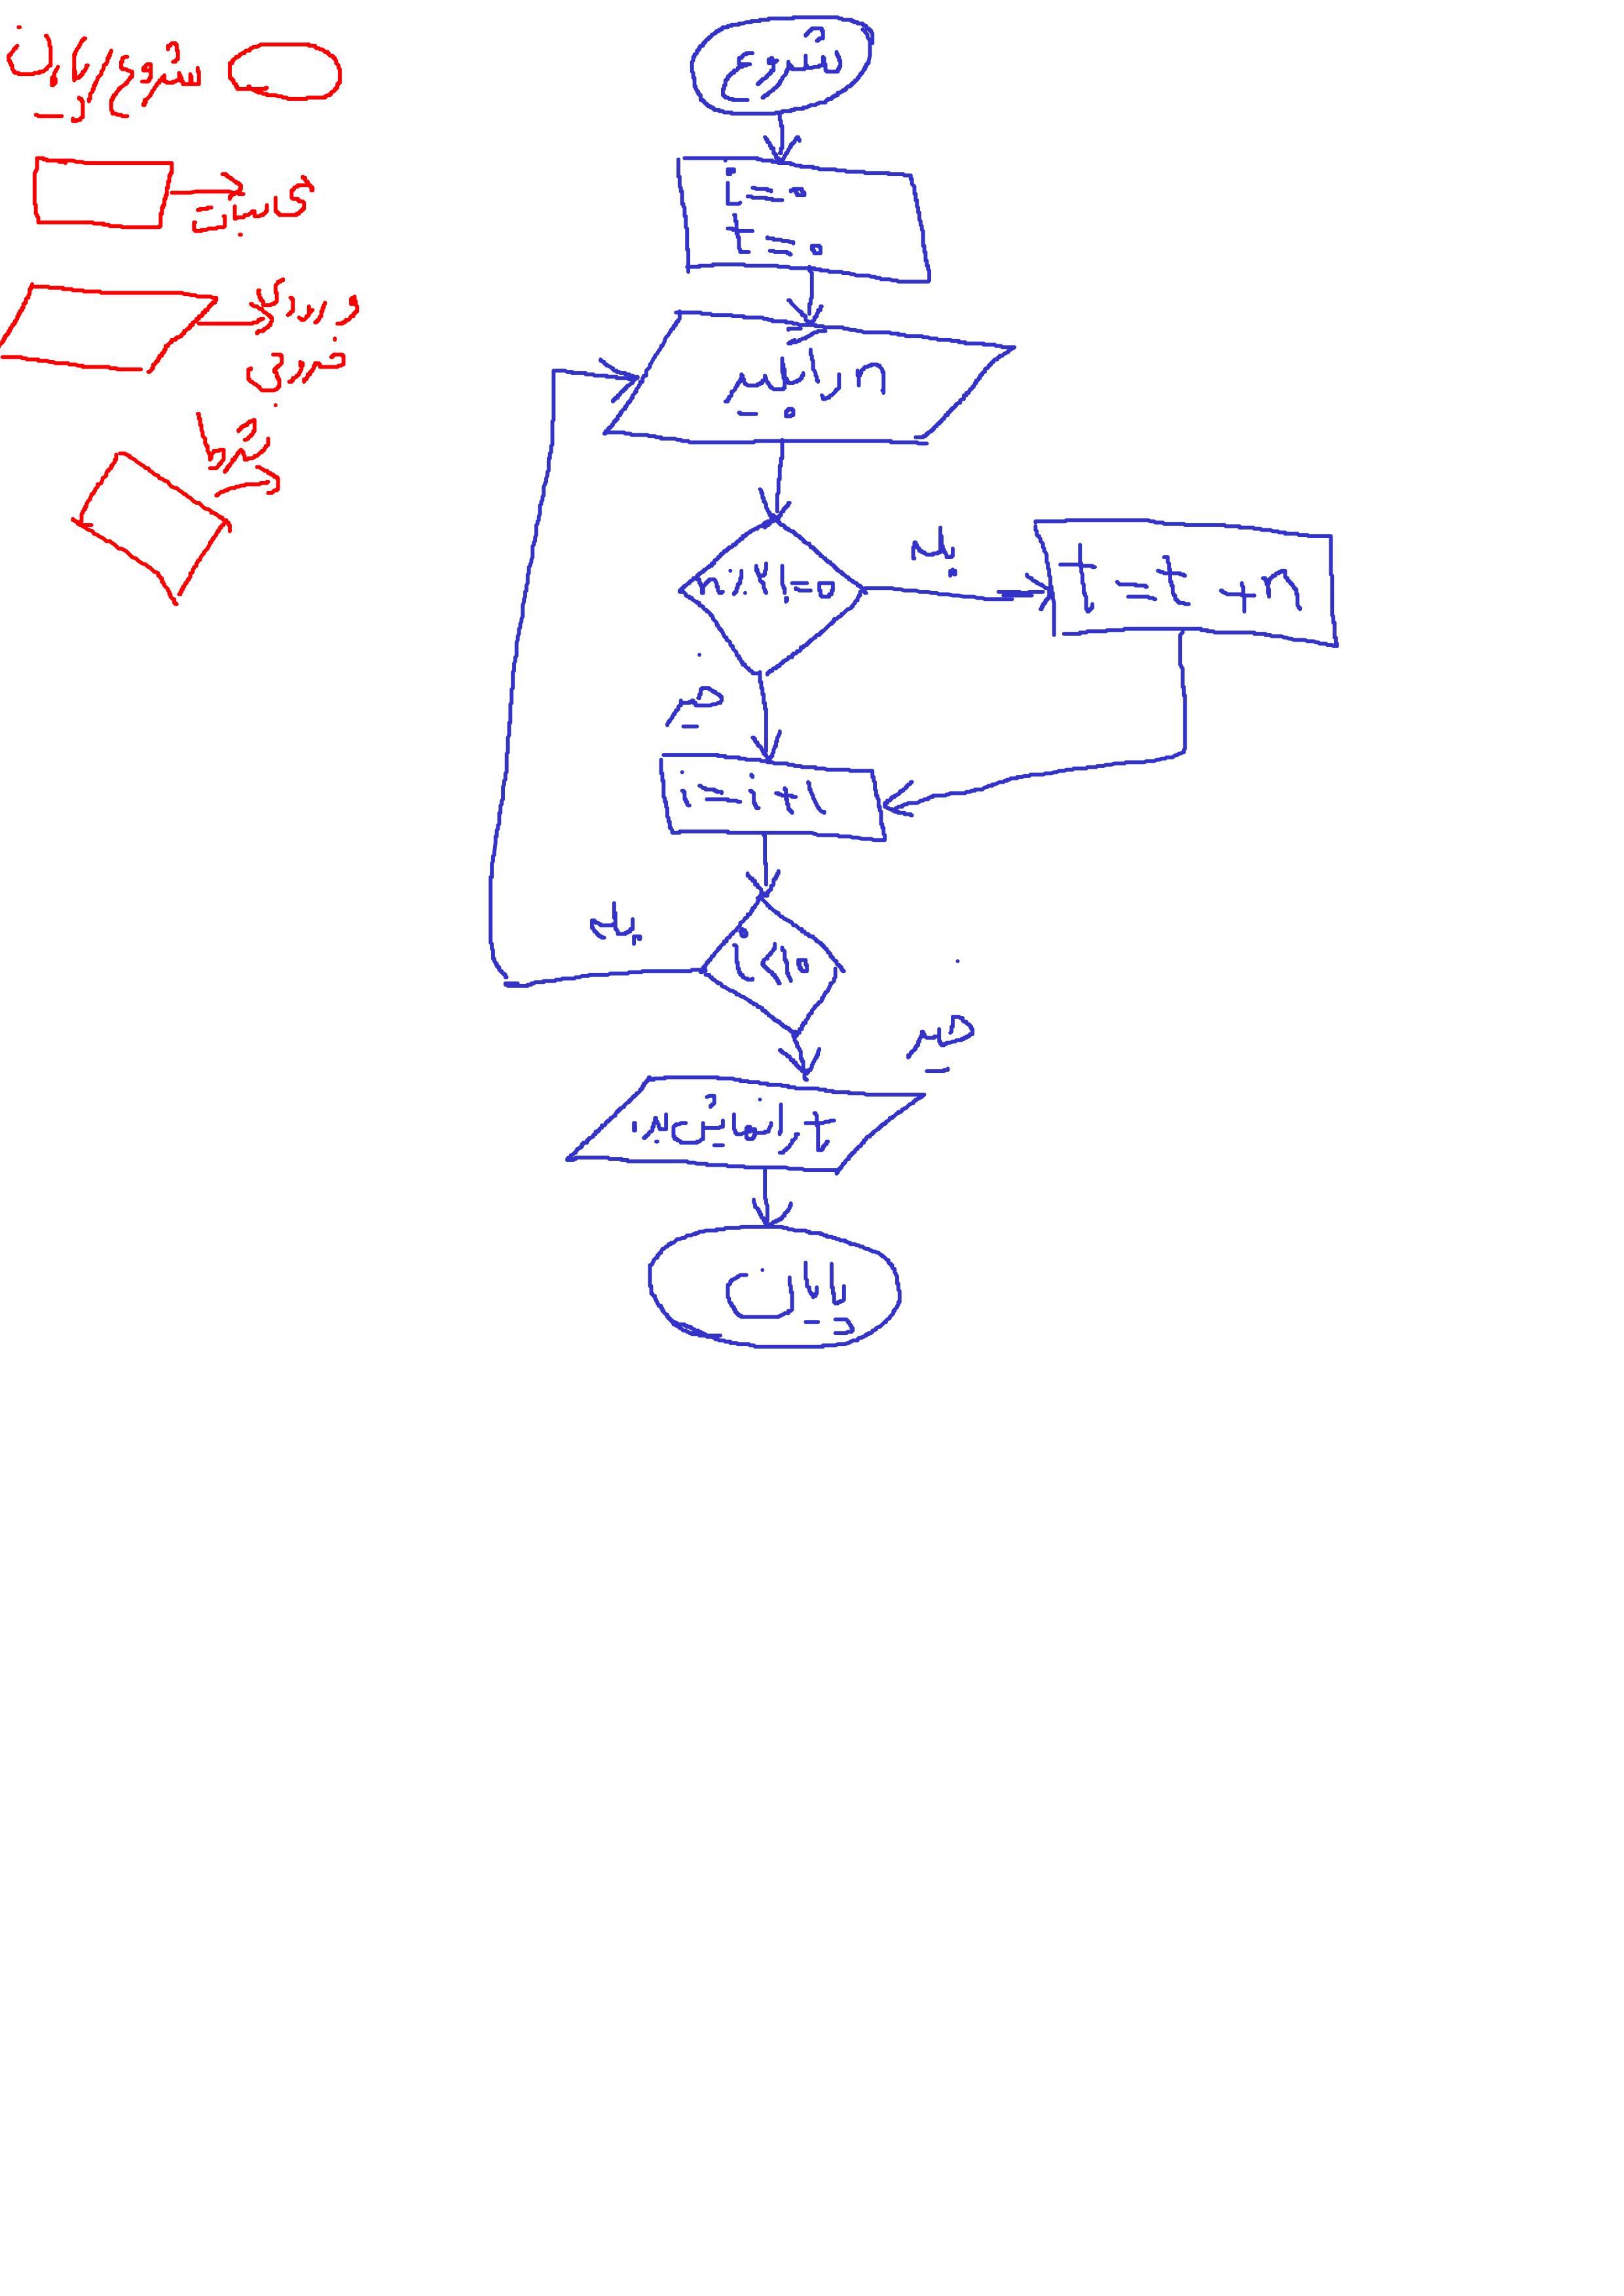 شروع/پایان
محاسبات
ورودی
خروجی
شرط
شروع
i=0
t=0
n را بگیر
n%2!=0
بله
t=t+n
خیر
i=i+1
i<10
بله
خیر
t را نمایش بده
پایان